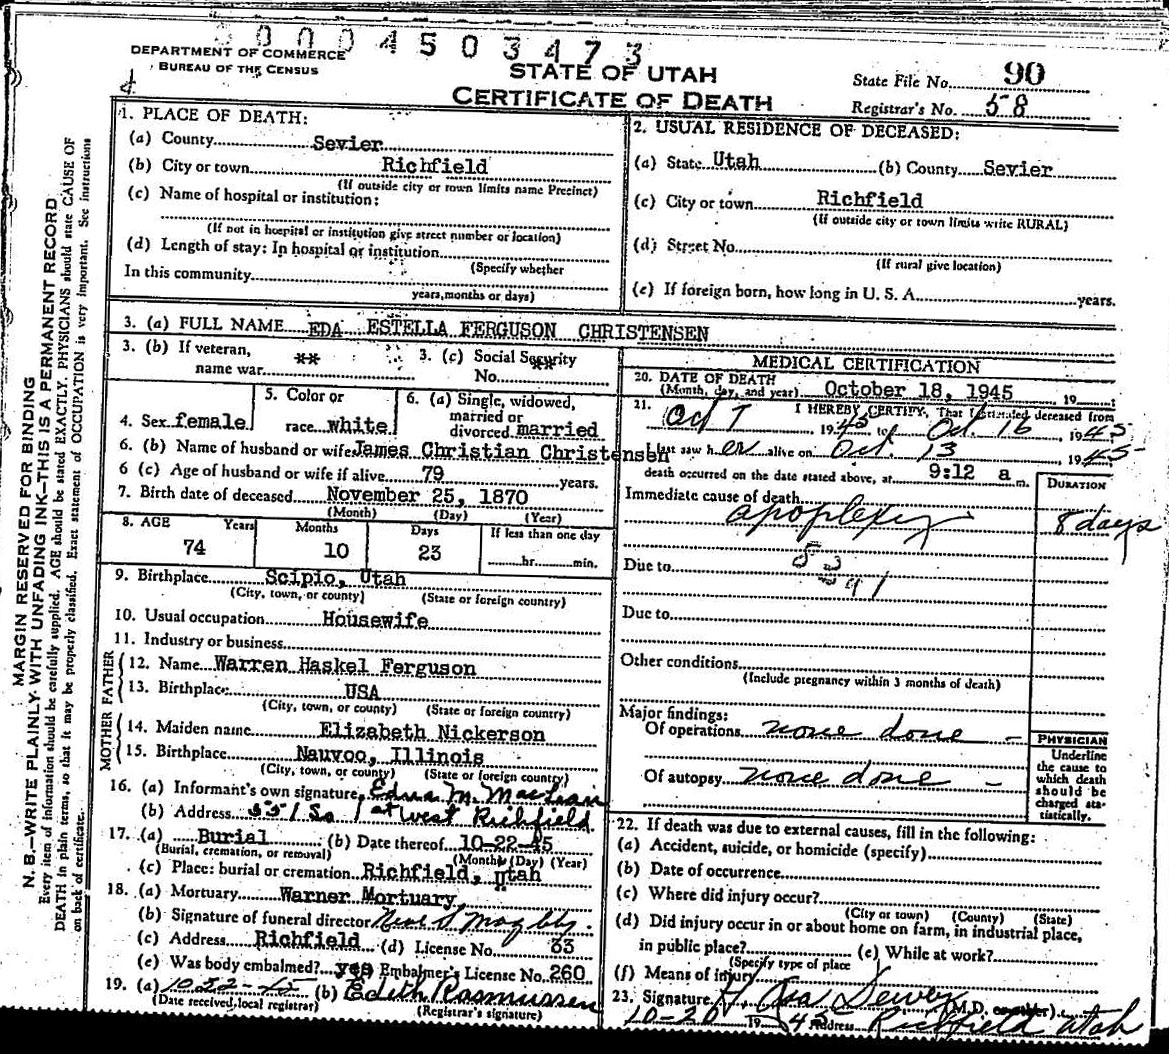 0004503473
DEPARTMENT OF COMMERCE
BUREAU OF THE CENSUS
STATE OF UTAH
CERTIFICATE OF DEATH
State File No. 90
Registrar's No. 58
1. PLACE OF DEATH:
(a) County Sevier
(b) City or town Richfield
(If outside city or town limits name Precinct)
(c) Name of hospital or institution:
(If not in hospital or institution give street number or location)
(d) Length of stay: In hospital or institution
(Specify whether
In this community
years, months or days)
2. USUAL RESIDENCE OF DECEASED:
(a) State Utah (b) County Sevier
(c) City or town Richfield
(If outside city or town limits write RURAL)
(d) Street No.
(If rural give location)
(e) If foreign born, how long in U. S. A. years.
3. (a) FULL NAME EDA ESTELLA FERGUSON CHRISTENSEN
3. (b) If veteran, name war ** 3. (c) Social Security No. **
4. Sex female 5. Color or race white 6. (a) Single, widowed, married or divorced married
6. (b) Name of husband or wife James Christian Christensen
6 (c) Age of husband or wife if alive 79 years.
7. Birth date of deceased November 25, 1870
(Month) (Day) (Year)
8. AGE Years Months Days If less than one day
74 10 23 hr. min.
9. Birthplace Scipio, Utah
(City, town, or county) (State or foreign country)
10. Usual occupation Housewife
11. Industry or business
FATHER
12. Name Warren Haskel Ferguson
13. Birthplace USA
(City, town, or county) (State or foreign country)
MOTHER
14. Maiden name Elizabeth Nickerson
15. Birthplace Nauvoo, Illinois
(City, town, or county) (State or foreign country)
16. (a) Informant's own signature Edna M. MacLean
(b) Address 551 So 1st West Richfield
17. (a) Burial (b) Date thereof 10-22-45
(Burial, cremation, or removal) (Month) (Day) (Year)
(c) Place: burial or cremation Richfield, Utah
18. (a) Mortuary Warner Mortuary
(b) Signature of funeral director
(c) Address Richfield (d) License No. 33
(e) Was body embalmed? yes Embalmer's License No. 260
19. (a) 10-22-45 (b) Edith Rasmussen
(Date received, local registrar) (Registrar's signature)
MEDICAL CERTIFICATION
20. DATE OF DEATH
(Month, day, and year) October 18, 1945 19
21. I HEREBY CERTIFY, That I attended deceased from
Oct 7 1945 to Oct. 16 1945
I last saw her alive on Oct. 13 1945
death occurred on the date stated above, at 9:12 a m.
DURATION
Immediate cause of death
apoplexy 8 days
Due to
Due to
Other conditions
(Include pregnancy within 3 months of death)
Major findings:
Of operations none done -
Of autopsy none done -
PHYSICIAN
Underline
the cause to
which death
should be
charged sta-
tistically.
22. If death was due to external causes, fill in the following:
(a) Accident, suicide, or homicide (specify)
(b) Date of occurrence
(c) Where did injury occur?
(City or town) (County) (State)
(d) Did injury occur in or about home on farm, in industrial place,
in public place? (e) While at work?
(Specify type of place
(f) Means of injury
23. Signature Dewey (M.D.
10-20 1945 Address Richfield Utah
MARGIN RESERVED FOR BINDING
N. B.—WRITE PLAINLY WITH UNFADING INK—THIS IS A PERMANENT RECORD
Every item of information should be carefully supplied. AGE should be stated EXACTLY. PHYSICIANS should state CAUSE OF
DEATH in plain terms, so that it may be properly classified. Exact statement of OCCUPATION is very important. See instructions
on back of certificate.